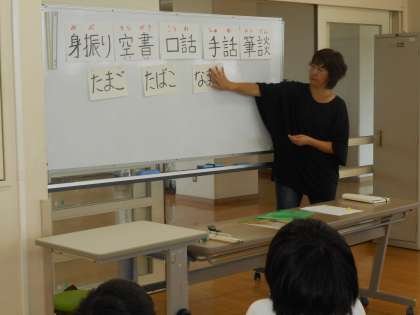 身振り 空書 口話 手話 筆談
たまご たばこ